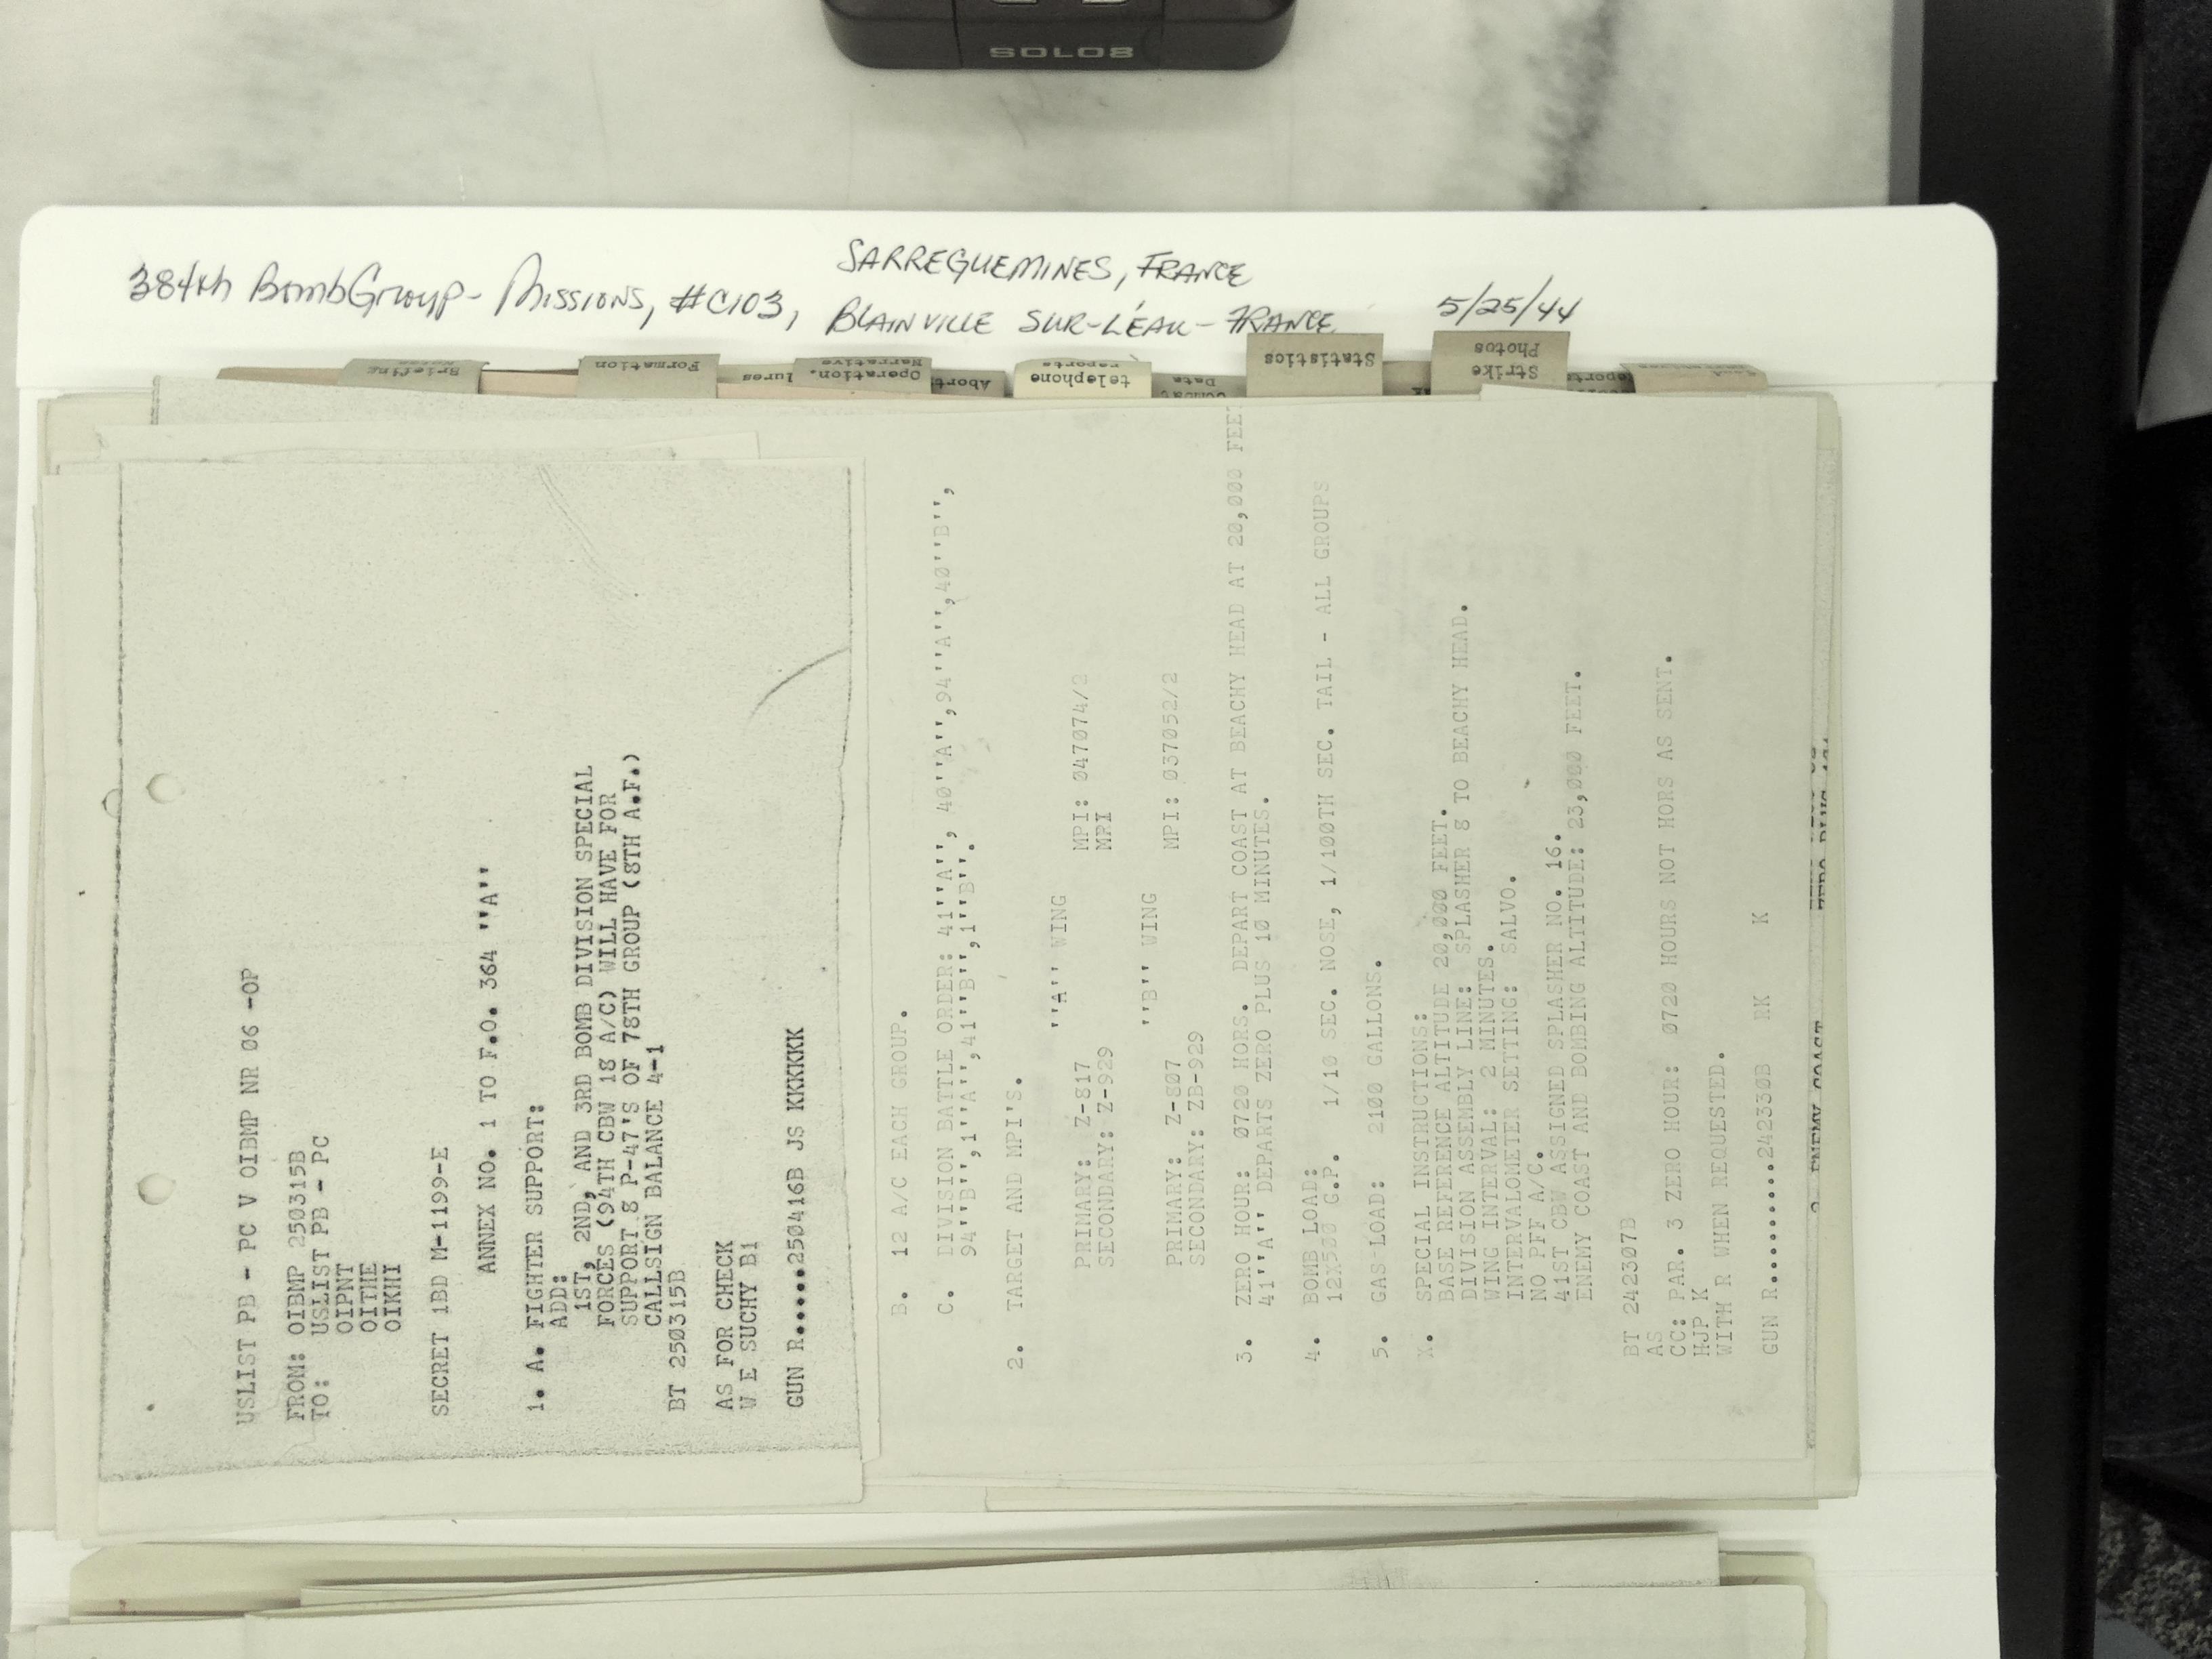 SOLO8
384th BombGroup - Missions, #C103,
SARREGUEMINES, FRANCE
BLAINVILLE SUR-L'EAU - FRANCE
5/25/44
Briefing
Formation
lures
Operation.
Narrative
Abort
telephone
reports
Combat
Data
Statistics
Strike
Photos
USLIST PB - PC V OIBMP NR 06 -OP
FROM: OIBMP 250315B
TO: USLIST PB - PC
OIPNT
OITHE
OIKHI
SECRET 1BD M-1199-E
ANNEX NO. 1 TO F.O. 364 ''A''
1. A. FIGHTER SUPPORT:
ADD:
1ST, 2ND, AND 3RD BOMB DIVISION SPECIAL
FORCES (94TH CBW 18 A/C) WILL HAVE FOR
SUPPORT 8 P-47'S OF 78TH GROUP (8TH A.F.)
CALLSIGN BALANCE 4-1
BT 250315B
AS FOR CHECK
W E SUCHY B1
GUN R.....250416B JS KKKKKK
B. 12 A/C EACH GROUP.
C. DIVISION BATTLE ORDER: 41''A'', 40''A'',94''A'',40''B'',
94''B'',1''A'',41''B'',1''B''.
2. TARGET AND MPI'S.
''A'' WING
PRIMARY: Z-817 MPI: 047074/2
SECONDARY: Z-929 MPI
''B'' WING
PRIMARY: Z-807 MPI: 037052/2
SECONDARY: ZB-929
3. ZERO HOUR: 0720 HORS. DEPART COAST AT BEACHY HEAD AT 20,000 FEET
41''A'' DEPARTS ZERO PLUS 10 MINUTES.
4. BOMB LOAD:
12X500 G.P. 1/10 SEC. NOSE, 1/100TH SEC. TAIL - ALL GROUPS
5. GAS LOAD: 2100 GALLONS.
X. SPECIAL INSTRUCTIONS:
BASE REFERENCE ALTITUDE 20,000 FEET.
DIVISION ASSEMBLY LINE: SPLASHER 8 TO BEACHY HEAD.
WING INTERVAL: 2 MINUTES.
INTERVALOMETER SETTING: SALVO.
NO PFF A/C.
41ST CBW ASSIGNED SPLASHER NO. 16.
ENEMY COAST AND BOMBING ALTITUDE: 23,000 FEET.
BT 242307B
AS
CC: PAR. 3 ZERO HOUR: 0720 HOURS NOT HORS AS SENT.
HJP K
WITH R WHEN REQUESTED.
GUN R..........242330B RK K
ENEMY COAST